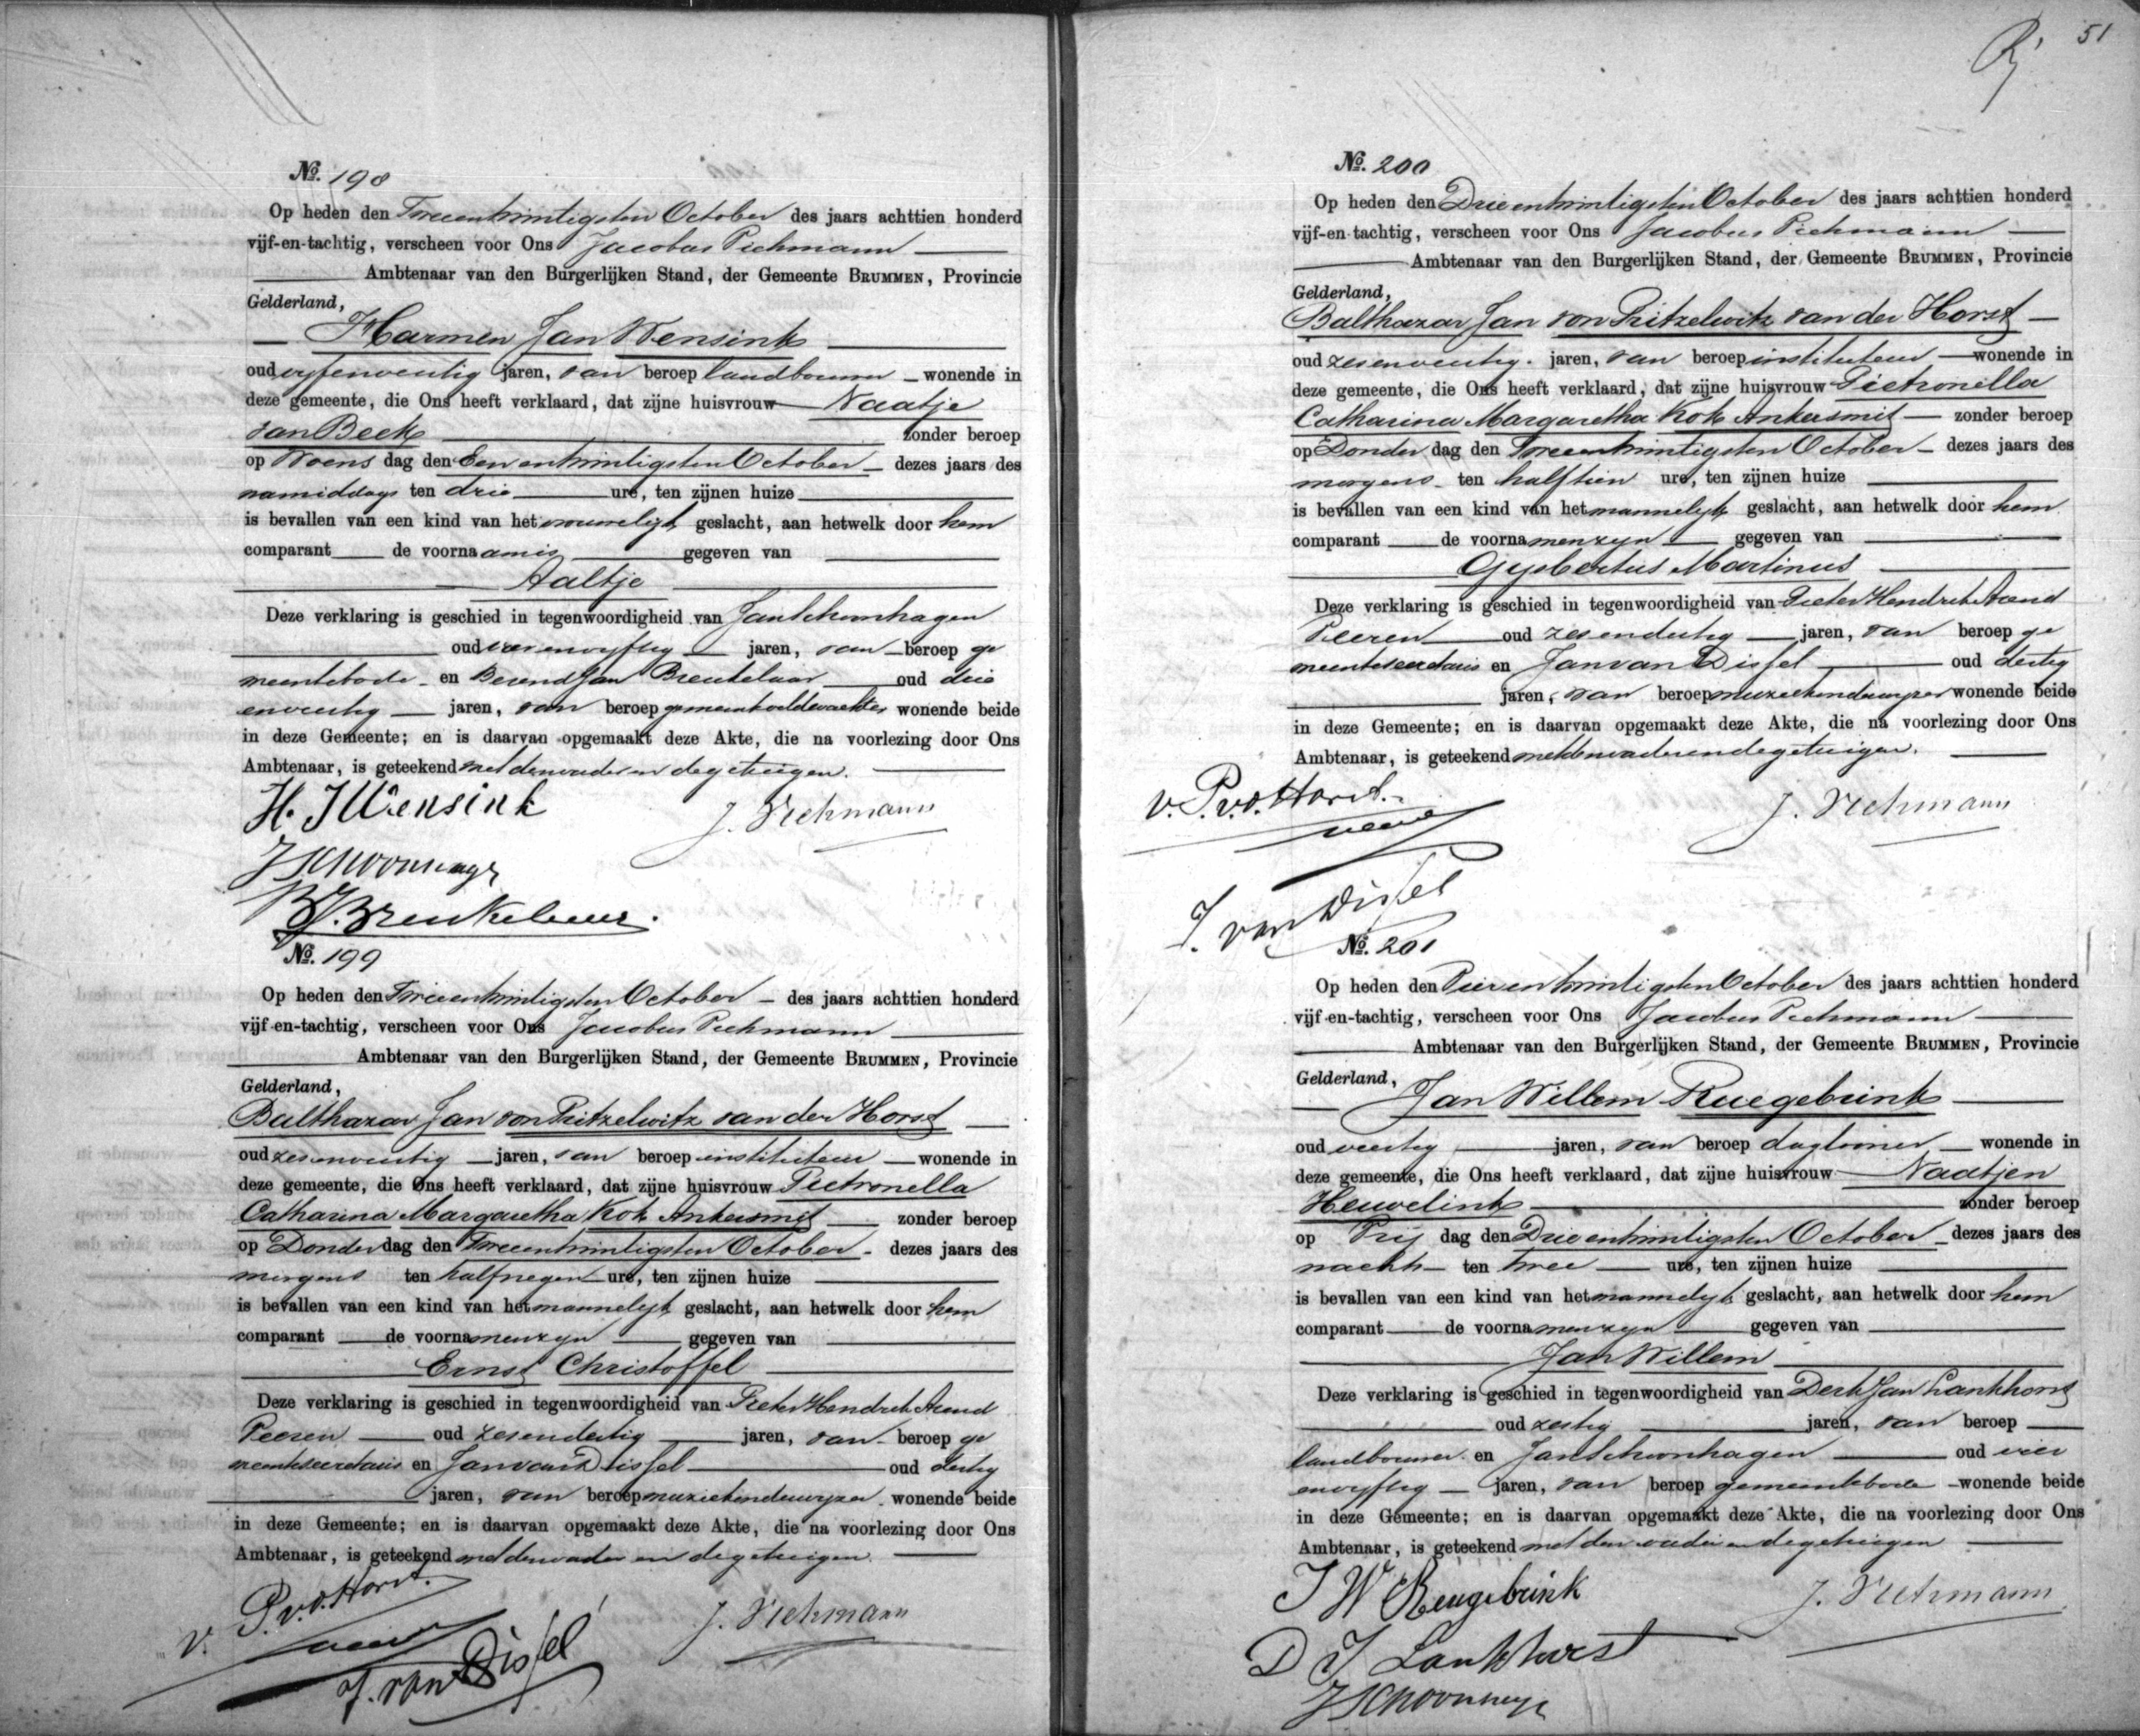 No. 198
Op heden den Tweeentwintigsten October des jaars achttien honderd
vijf-en-tachtig, verscheen voor Ons Jacobus Viehmann
Ambtenaar van den Burgerlijken Stand, der Gemeente BRUMMEN, Provincie
Gelderland,
Harmen Jan Wensink
oud vyfenveertig jaren, van beroep landbouwer wonende in
deze gemeente, die Ons heeft verklaard, dat zijne huisvrouw Naatje
van Beek zonder beroep
op Woens dag den Een entwintigsten October dezes jaars des
namiddags ten drie ure, ten zijnen huize
is bevallen van een kind van het vrouwelijk geslacht, aan hetwelk door hem
comparant de voornaam is gegeven van
Aaltje
Deze verklaring is geschied in tegenwoordigheid van Jan Schoonhagen
oud vierenvyftig jaren, van beroep ge
meentebode en Berend Jan Breukelaar oud drie
enveertig jaren, van beroep gemeenteveldwachter wonende beide
in deze Gemeente; en is daarvan opgemaakt deze Akte, die na voorlezing door Ons
Ambtenaar, is geteekend met den vader en de getuigen.
H. J Wensink
J. Viehmann
J Schoonhagen
B J. Breukelaar.
No. 199
Op heden den Tweeentwintigsten October des jaars achttien honderd
vijf-en-tachtig, verscheen voor Ons Jacobus Viehmann
Ambtenaar van den Burgerlijken Stand, der Gemeente BRUMMEN, Provincie
Gelderland,
Balthazar Jan von Pritzelwitz van der Horst
oud zesenveertig jaren, van beroep instituteur wonende in
deze gemeente, die Ons heeft verklaard, dat zijne huisvrouw Pietronella
Catharina Margaretha Kok Ankersmit zonder beroep
op Donder dag den Tweeentwintigsten October dezes jaars des
morgens ten halfnegen ure, ten zijnen huize
is bevallen van een kind van het mannelijk geslacht, aan hetwelk door hem
comparant de voornamen zyn gegeven van
Ernst Christoffel
Deze verklaring is geschied in tegenwoordigheid van Pieter Hendrik Arend
Peeren oud zesendertig jaren, van beroep ge
meentesecretaris en Jan van Dissel oud dertig
jaren, van beroep muziekonderwyzer wonende beide
in deze Gemeente; en is daarvan opgemaakt deze Akte, die na voorlezing door Ons
Ambtenaar, is geteekend met den vader en de getuigen.
v. P. v. d. Horst.
J. Viehmann
J. van Dissel
51
No. 200
Op heden den Drieentwintigsten October des jaars achttien honderd
vijf-en-tachtig, verscheen voor Ons Jacobus Viehmann
Ambtenaar van den Burgerlijken Stand, der Gemeente BRUMMEN, Provincie
Gelderland,
Balthazar Jan von Pritzelwitz van der Horst
oud zesenveertig jaren, van beroep instituteur wonende in
deze gemeente, die Ons heeft verklaard, dat zijne huisvrouw Pietronella
Catharina Margaretha Kok Ankersmit zonder beroep
op Donder dag den Tweeentwintigsten October dezes jaars des
morgens ten halftien ure, ten zijnen huize
is bevallen van een kind van het mannelijk geslacht, aan hetwelk door hem
comparant de voornamen zyn gegeven van
Gysbertus Martinus
Deze verklaring is geschied in tegenwoordigheid van Pieter Hendrik Arend
Peeren oud zesendertig jaren, van beroep ge
meentesecretaris en Jan van Dissel oud dertig
jaren, van beroep muziekonderwyzer wonende beide
in deze Gemeente; en is daarvan opgemaakt deze Akte, die na voorlezing door Ons
Ambtenaar, is geteekend met den vader en de getuigen.
v. P. v. d. Horst.
J. Viehmann
J. van Dissel
No. 201
Op heden den Vierentwintigsten October des jaars achttien honderd
vijf-en-tachtig, verscheen voor Ons Jacobus Viehmann
Ambtenaar van den Burgerlijken Stand, der Gemeente BRUMMEN, Provincie
Gelderland,
Jan Willem Ruegebrink
oud veertig jaren, van beroep daglooner wonende in
deze gemeente, die Ons heeft verklaard, dat zijne huisvrouw Naatjen
Heuvelink zonder beroep
op Vrij dag den Drieentwintigsten October dezes jaars des
nachts ten twee ure, ten zijnen huize
is bevallen van een kind van het mannelijk geslacht, aan hetwelk door hem
comparant de voornamen zyn gegeven van
Jan Willem
Deze verklaring is geschied in tegenwoordigheid van Derk Jan Lankhorst
oud zestig jaren, van beroep
landbouwer en Jan Schoonhagen oud vier
envyftig jaren, van beroep gemeentebode wonende beide
in deze Gemeente; en is daarvan opgemaakt deze Akte, die na voorlezing door Ons
Ambtenaar, is geteekend met den vader en de getuigen
J W Reugebrink
J. Viehmann
D J Lankhorst
J Schoonhagen